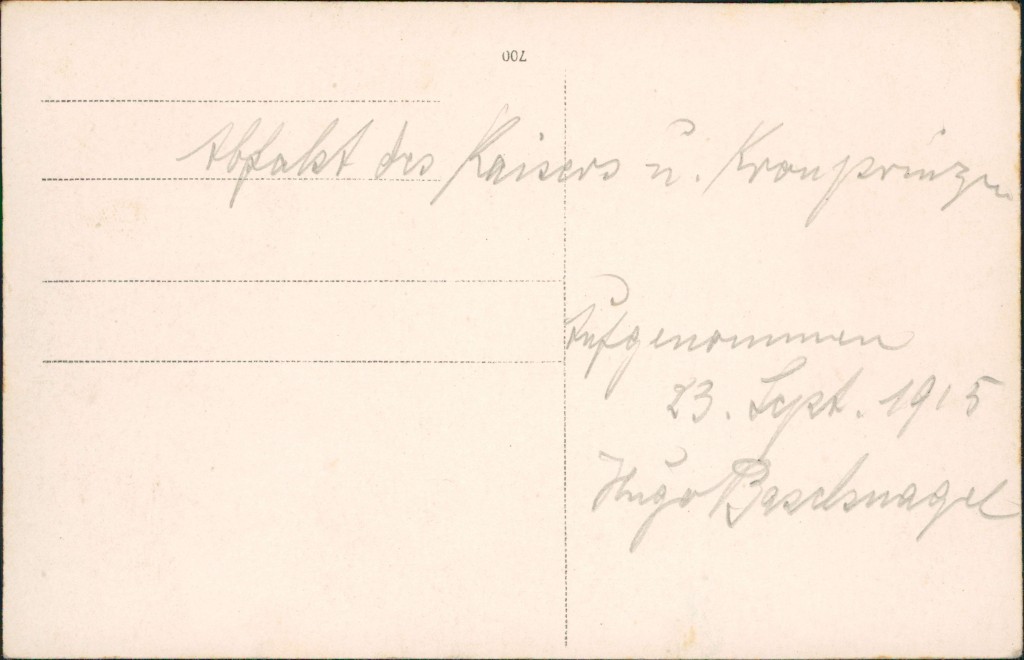 700
Abfahrt des Kaisers u. Kronprinzen
Aufgenommen
23. Sept. 1915
Hugo